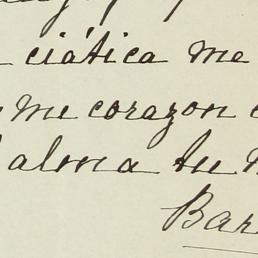 ciática me
me corazon
alma tu
Bar